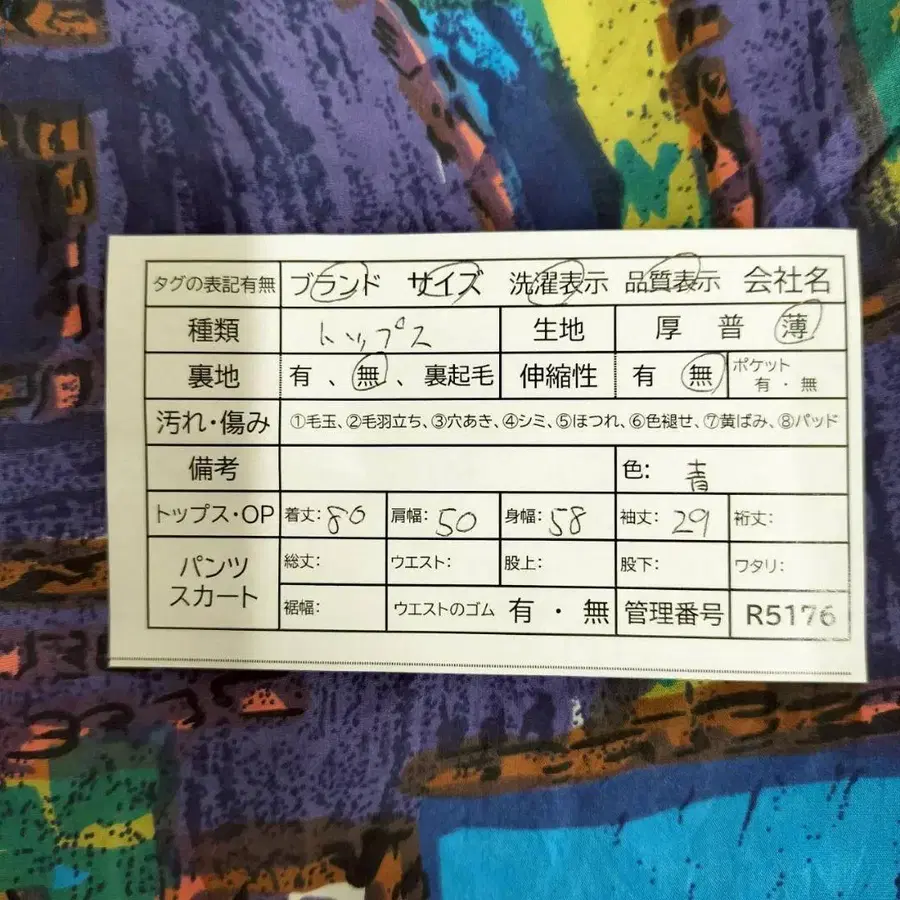 タグの表記有無 ブランド サイズ 洗濯表示 品質表示 会社名
種類 トップス 生地 厚 普 薄
裏地 有、無、裏起毛 伸縮性 有 無 ポケット 有・無
汚れ・傷み ①毛玉、②毛羽立ち、③穴あき、④シミ、⑤ほつれ、⑥色褪せ、⑦黄ばみ、⑧パッド
備考 色: 青
トップス・OP 着丈:80 肩幅:50 身幅:58 袖丈:29 裄丈:
パンツ スカート 総丈: ウエスト: 股上: 股下: ワタリ:
裾幅: ウエストのゴム 有・無 管理番号 R5176